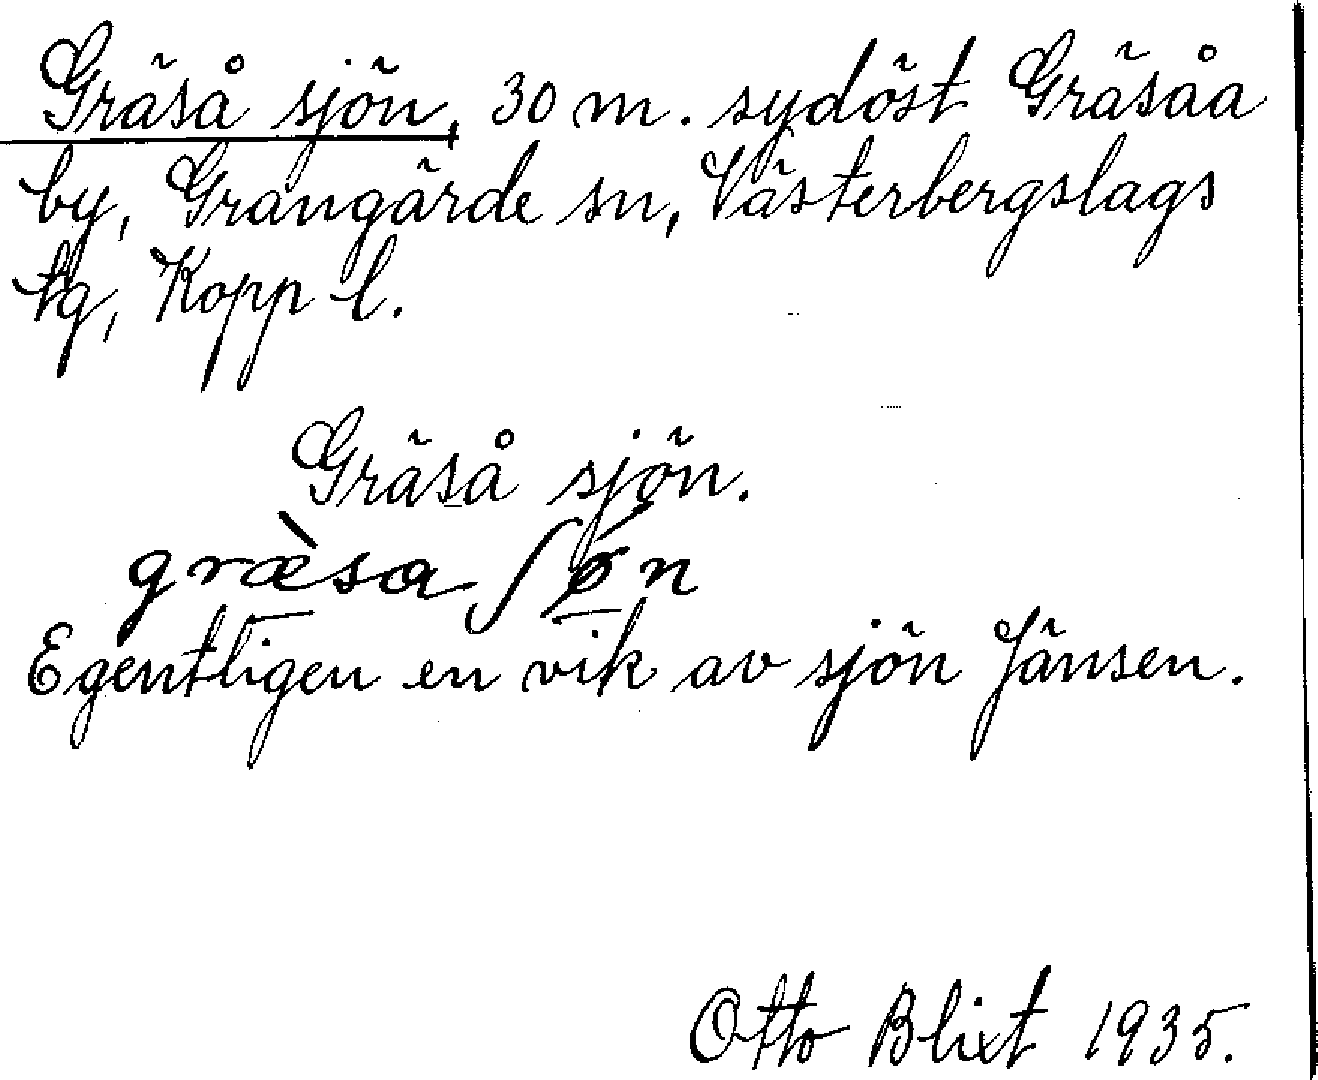 Gräså sjön, 30 m. sydöst Gräsåa
by, Grangärde sn, Västerbergslags
tg, Kopp l.
Gräså sjön.
græ̀sa ʃøn
Egentligen en vik av sjön Jänsen.
Otto Blixt 1935.